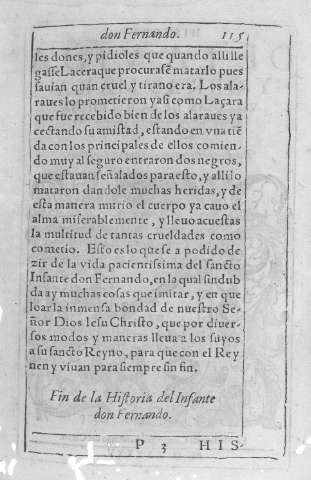 don Fernando. 115
les dones, y pidioles que quando alli lle
gasse Lacera que procurasẽ matarlo pues
sauian quan cruel y tirano era. Los ala-
raues lo prometieron yasi como Laçara
que fue recebido bien de los alaraues ya
cectando su amistad, estando en vna tiẽ
da con los principales de ellos comien-
do muy al seguro entraron dos negros,
que estauan señalados para esto, y alli lo
mataron dandole muchas heridas, y de
esta manera murio el cuerpo ya cauo el
alma miserablemente, y lleuo acuestas
la multitud de tantas crueldades como
cometio. Esto es lo que se a podido de
zir de la vida pacientissima del sancto
Infante don Fernando, en la qual sindub
da ay muchas cosas que imitar, y en que
loar la inmensa bondad de nuestro Se-
ñor Dios Iesu Christo, que por diuer-
sos modos y maneras lleua a los suyos
a su sancto Reyno, para que con el Rey
nen y viuan para siempre sin fin.
Fin de la Historia del Infante
don Fernando.
P 3 HIS-